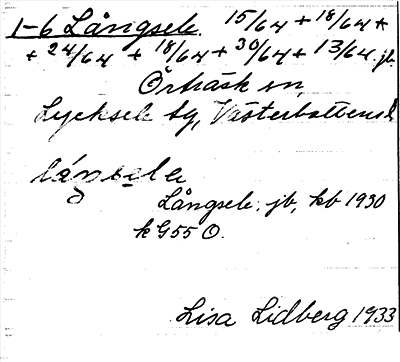 1-6 Långsele. 15/64 + 18/64 +
+ 24/64 + 18/64 + 30/64 + 13/64. jb.
Örträsk sn,
Lycksele tg, Västerbottens l
låŋsele
Långsele. jb, kb 1930
k G55 O.
Lisa Lidberg 1933